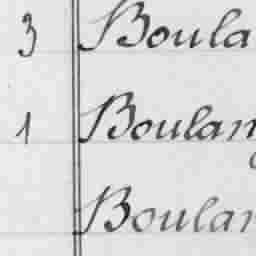 3 Boula
1 Boulan
Boulan